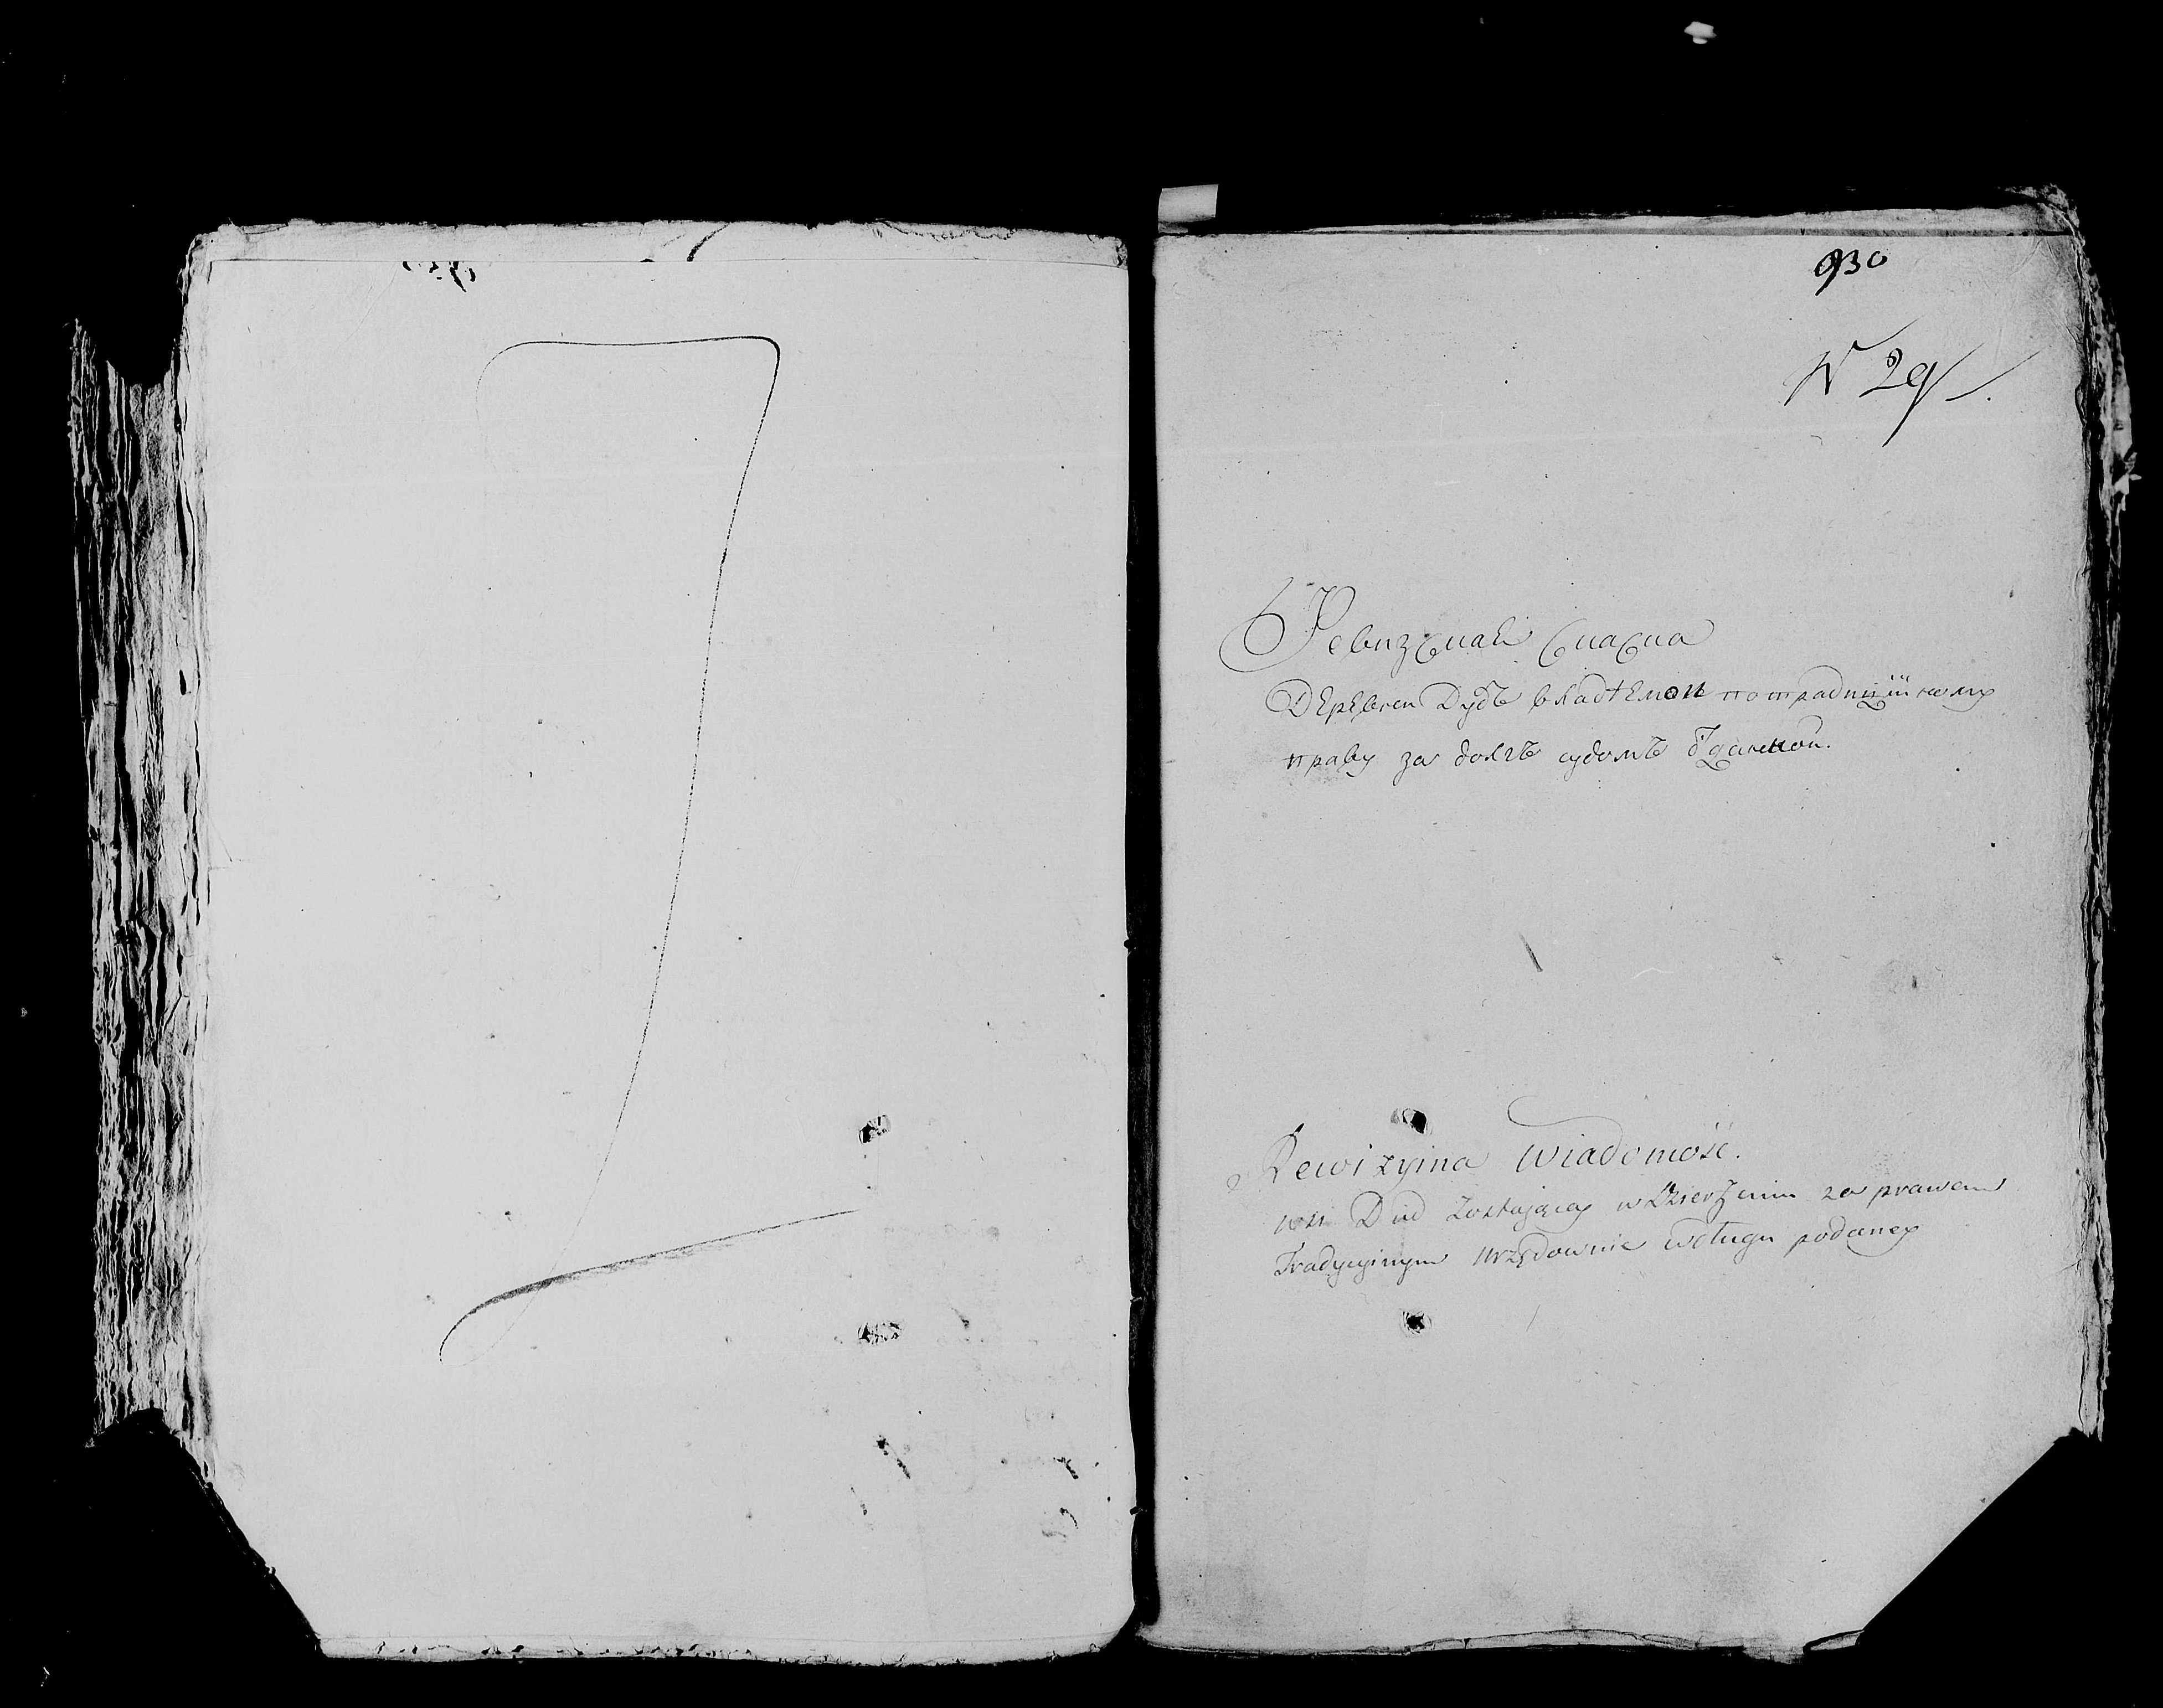 930
N 29
Ревизская Сказка
Деревни Дудъ владѣемой по традиційному
праву за долгъ судомъ отданной.
Rewizyina Wiadomość.
wsi Dud zostaiącey w Dzierżeniu za prawem
Tradycyinym Urzędownie wedługu podaney